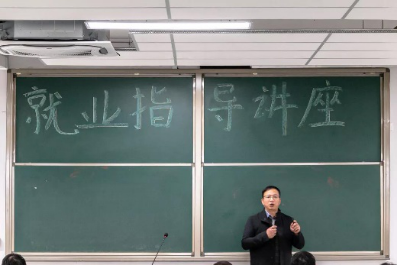 就业指导讲座